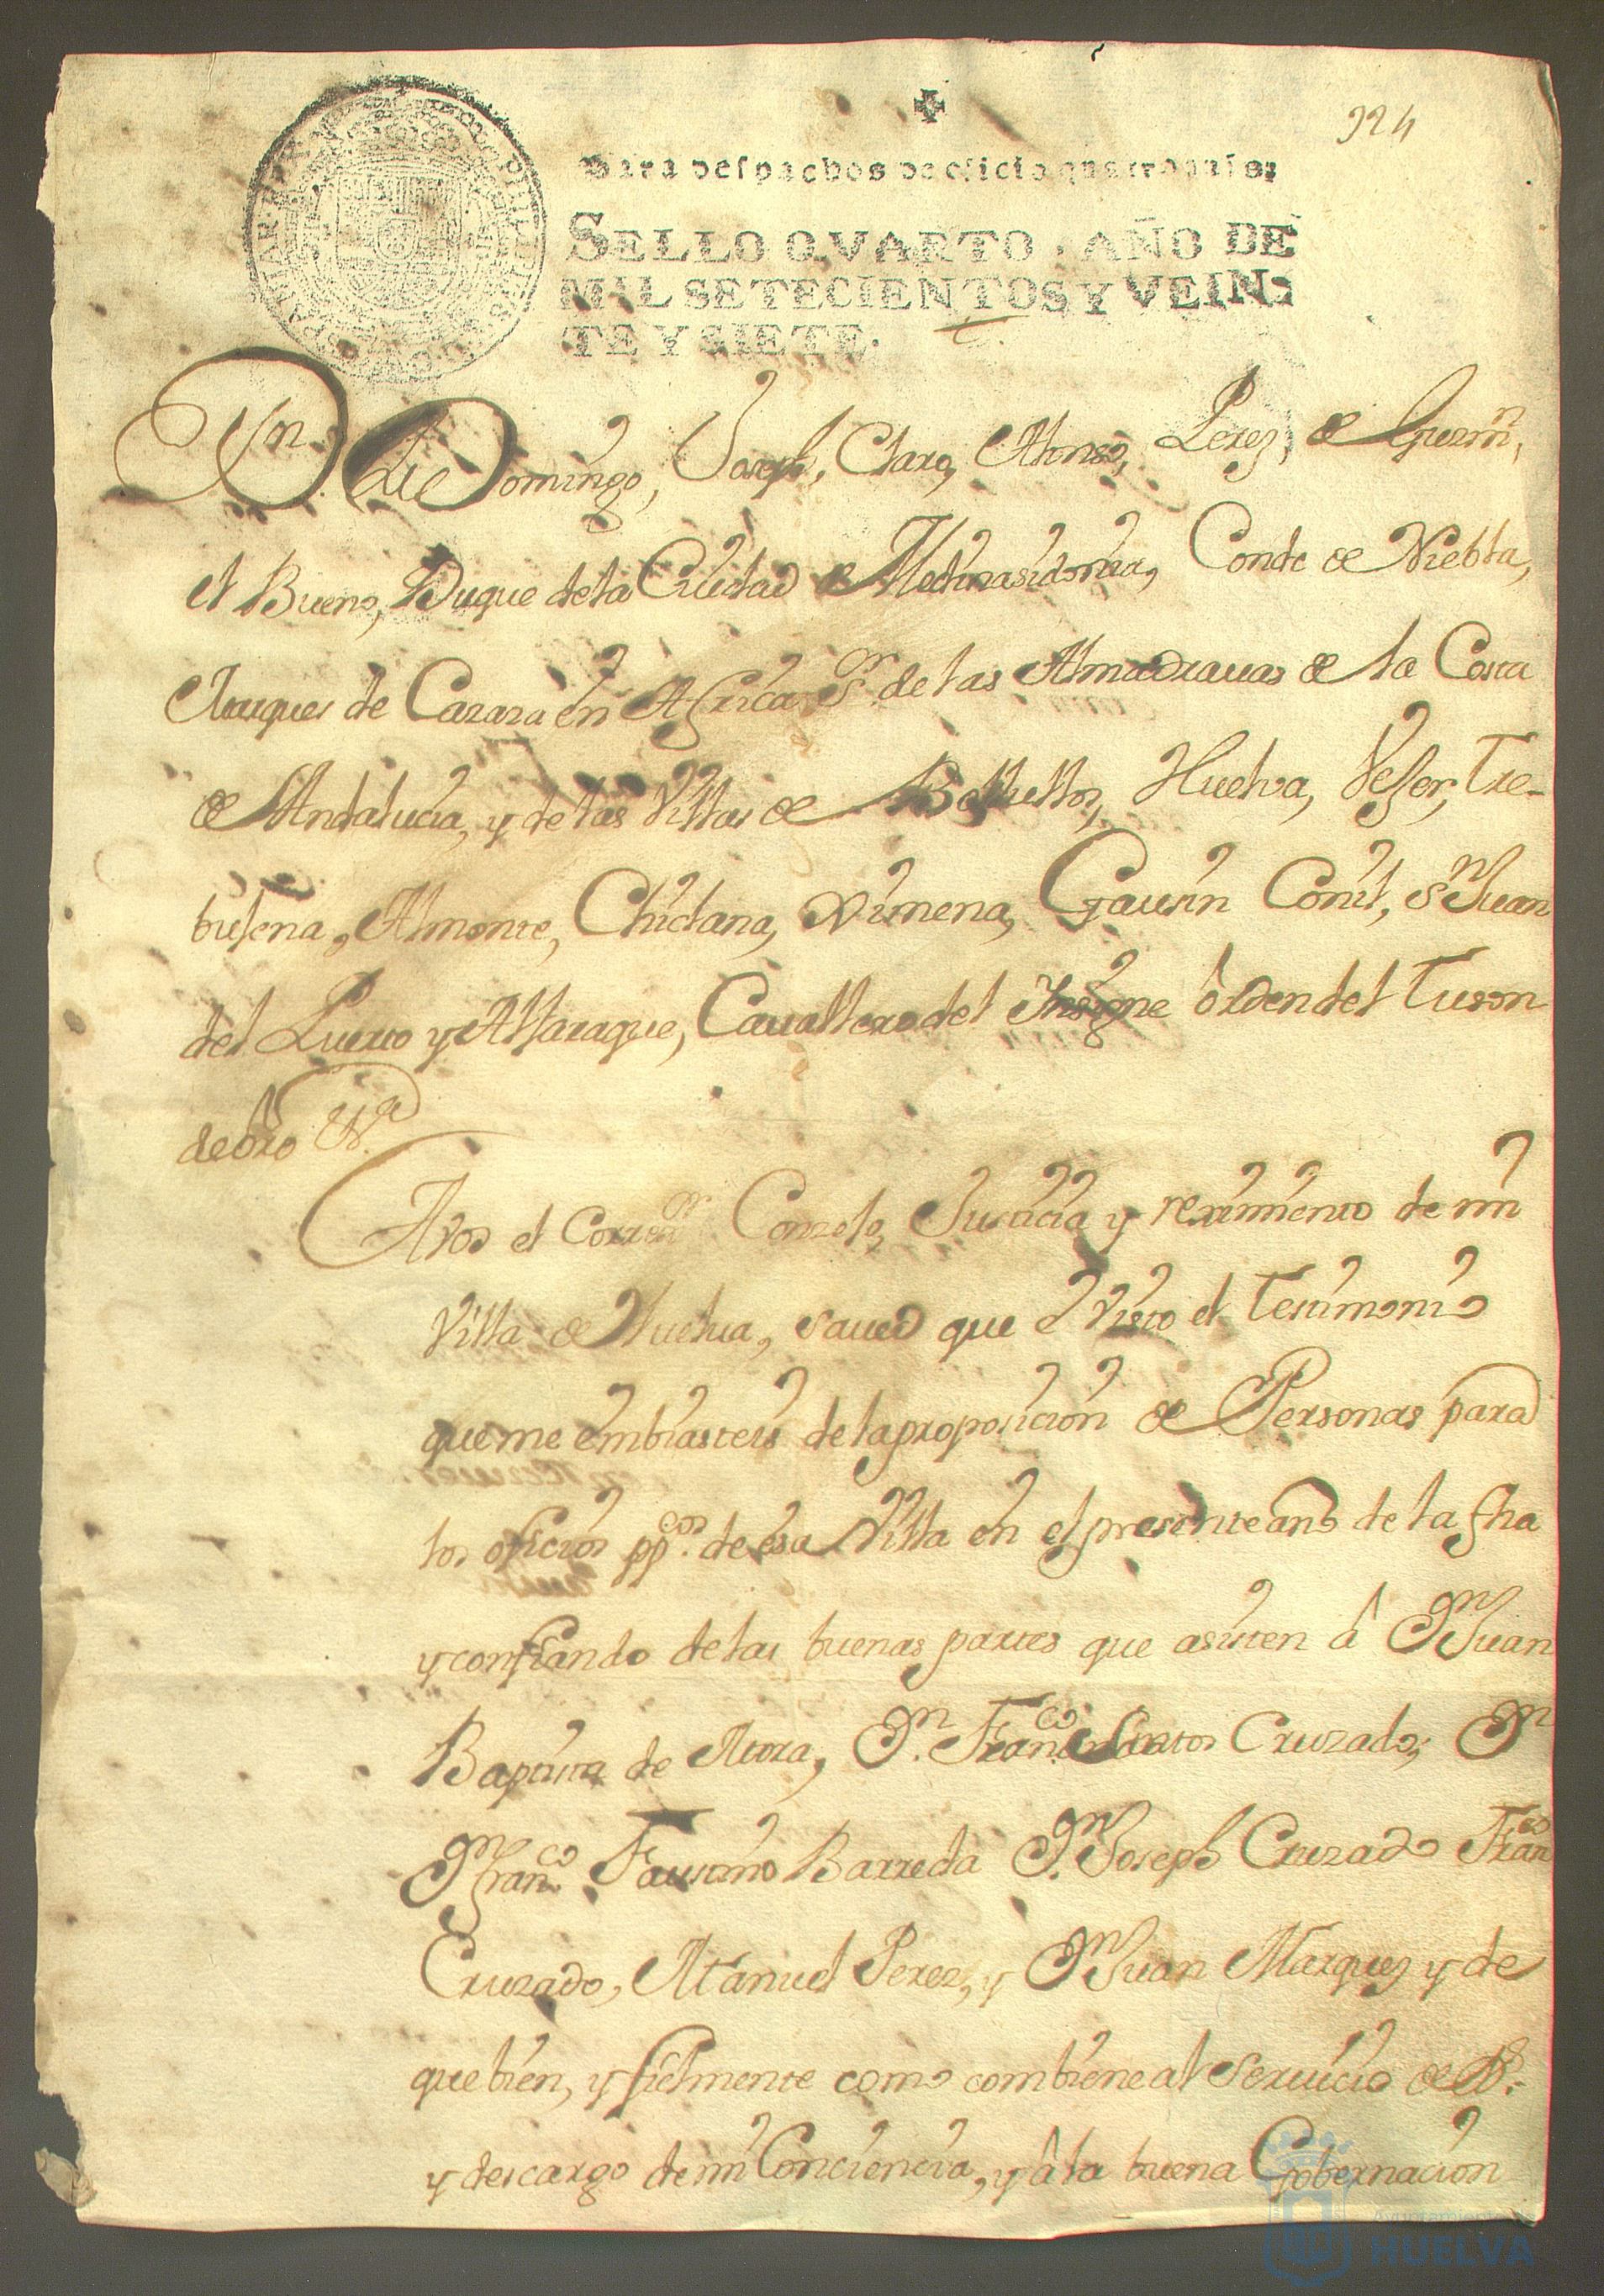 924
Para despachos de oficio quatro mrs.
SELLO QVARTO, AÑO DE
MIL SETECIENTOS Y VEIN-
TE Y SIETE.
Dn. Domingo, Joseph, Claro, Alonso, Perez, de Guzmn,
el Bueno, Duque de la Ciudad de Medinasidonia, Conde de Niebla,
Marques de Cazaza en Africa Sor. de las Almadrauas de la Costa
de Andalucia, y de las Villas de Bollullos, Huelva, Vejer, Tre-
bujena, Almonte, Chiclana, Ximena, Gausin Conil, Sn Juan
del Puerto y Aljaraque, Cauallero del Insigne orden del Tuson
de oro Va.
A vos el Corredor. Conzejo, Justicia y reximiento de mi
Villa de Huelua, saued que e Visto el Testimonio
que me embiasteis de la proposicion de Personas para
los oficios ppcos. de esa Villa en el presente año de la fha
y confiando de las buenas partes que asisten â Dn Juan
Baptista de Mora, Dn. Franco. Cruzado, Dn
Dn franco. Faustino Barreda Dn. Joseph Cruzado Franco
Cruzado, Manuel Perez, y Dn Juan Marquez y de
que bien, y fielmente como combiene al Seruicio de Ds.
y descargo de mi Conciencia, y â la buena Gobernacion
Ayuntamiento de
HUELVA